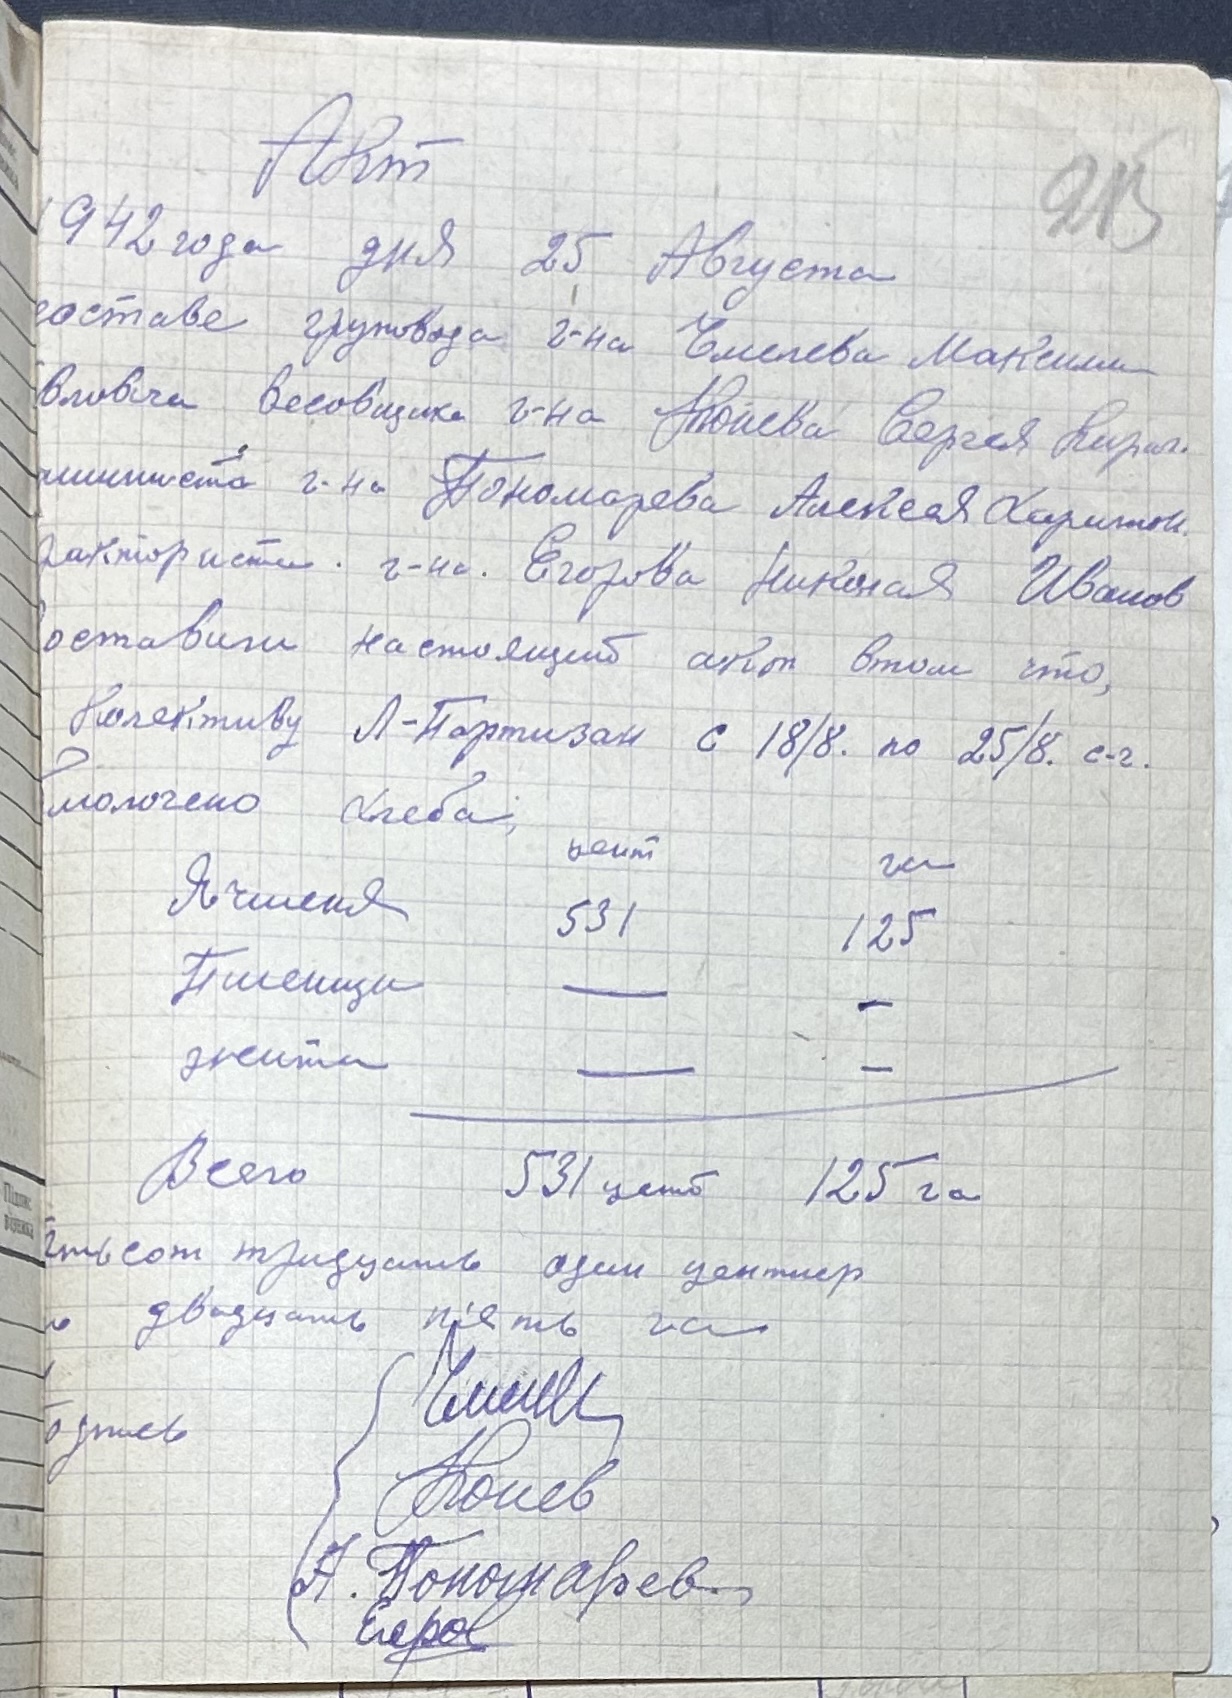 Акт
213
1942 года дня 25 Августа
составе груповода г-на Чмелева Максим
вловича весовщика г-на Конева Сергея Кирил.
шиниста г-на Пономарева Алексея Харитон.
ракториста. г-на. Егорова Николая Иванов
составили настоящий акт втом что,
Колективу Л-Партизан с 18/8. по 25/8. с-г.
молочено хлеба;
цент га
Ячменя 531 125
Пшеницы — –
жита — –
Всего 531 цент 125 га
ятьсот тридцать один центнер
двадцать пять га
одпись
Чмелев
Конев
А. Пономарев
Егоров
Підпис